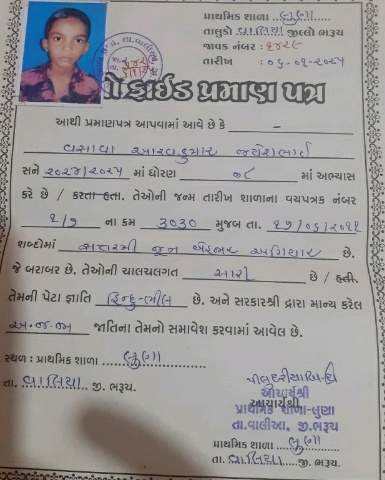 પ્રાથમિક શાળા લુણા
તાલુકો વાલિયા જીલ્લો ભરૂચ
જાવક નંબર : ૧૪૨૯
તારીખ : ૦૬-૦૧-૨૦૨૫
બોનાફાઈડ પ્રમાણ પત્ર
આથી પ્રમાણપત્ર આપવામાં આવે છે કે
વસાવા આરવકુમાર જયેશભાઈ
સને ૨૦૨૪/૨૦૨૫ માં ધોરણ ૦૮ માં અભ્યાસ
કરે છે / કરતા હતા. તેઓની જન્મ તારીખ શાળાના વયપત્રક નંબર
૧/૭ ના ક્રમ ૩૦૩૦ મુજબ તા. ૧૭/૦૬/૨૦૧૧
શબ્દોમાં સત્તરમી જૂન બેહજાર અગિયાર છે.
જે બરાબર છે. તેઓની ચાલચલગત સારી છે / હતી.
તેમની પેટા જ્ઞાતિ હિન્દુ-ભીલ છે. અને સરકારશ્રી દ્વારા માન્ય કરેલ
અ.જ.જા જાતિના તેમનો સમાવેશ કરવામાં આવેલ છે.
સ્થળ : પ્રાથમિક શાળા લુણા
તા. વાલિયા જી. ભરૂચ.
આચાર્યશ્રી
આચાર્યશ્રી
પ્રાથમિક શાળા-લુણા
તા.વાલીઆ. જી.ભરૂચ
પ્રાથમિક શાળા લુણા
તા. વાલિયા જી. ભરૂચ.